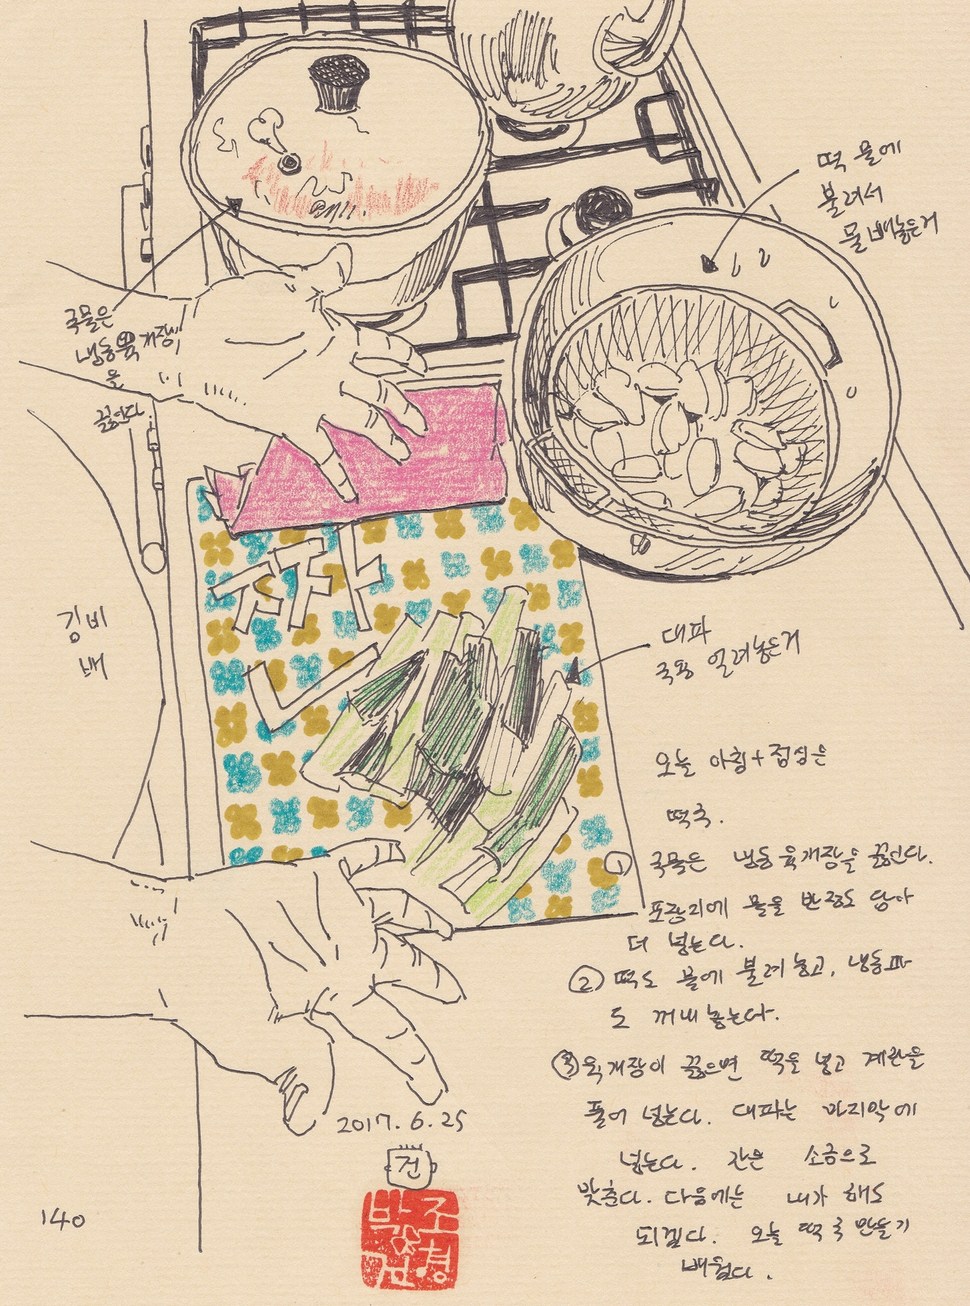 떡 물에
불려서
물 빼놓은거
국물은
냉동 육개장
을
끓인다.
짜
김비
배
대파
국용 얼려놓은거
오늘 아침+점심은
떡국.
① 국물은 냉동 육개장을 끓인다.
포장지에 물을 반정도 담아
더 넣는다.
② 떡도 물에 불려 놓고, 냉동파
도 꺼내 놓는다.
③ 육개장이 끓으면 떡을 넣고 계란을
풀어 넣는다. 대파는 마지막에
넣는다. 간은 소금으로
맞춘다. 다음에는 내가 해도
되겠다. 오늘 떡국 만들기
배웠다.
2017. 6. 25
건
박조
건형
140